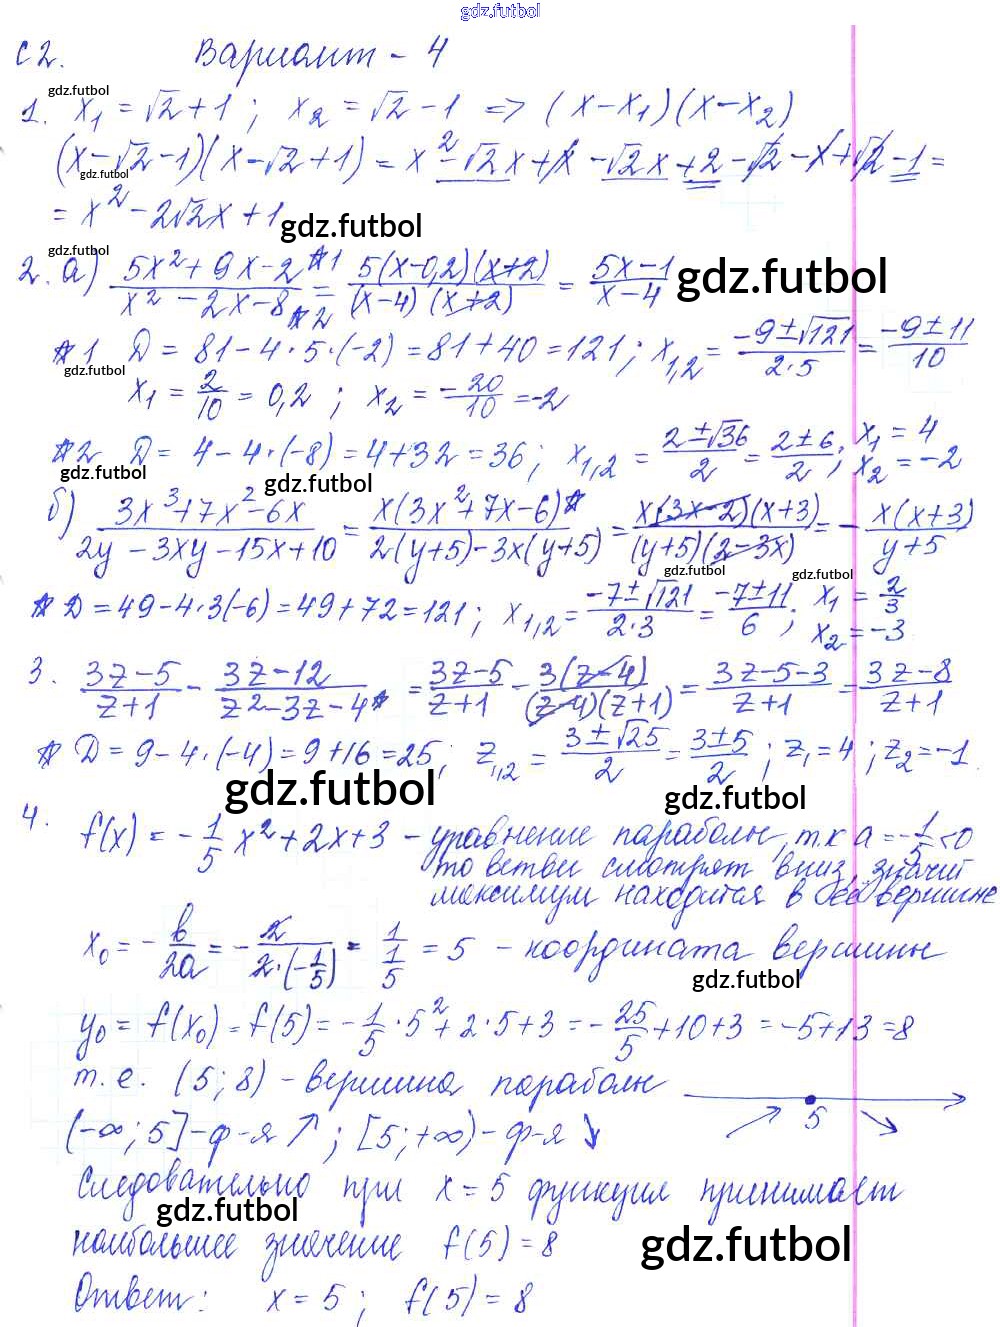 gdz.futbol
С2. Вариант - 4
gdz.futbol
1. x₁ = √2 + 1 ; x₂ = √2 - 1 => (x - x₁)(x - x₂)
(x-√2-1)(x-√2+1) = x² - √2x + x - √2x + 2 - √2 - x + √2 - 1 =
gdz.futbol
= x² - 2√2x + 1
gdz.futbol
gdz.futbol
2. а) (5x² + 9x - 2 *1)/(x² - 2x - 8 *2) = 5(x-0,2)(x+2)/((x-4)(x+2)) = (5x-1)/(x-4)
gdz.futbol
*1 D = 81 - 4·5·(-2) = 81 + 40 = 121 ; x₁,₂ = (-9±√121)/(2·5) = (-9±11)/10
gdz.futbol
x₁ = 2/10 = 0,2 ; x₂ = -20/10 = -2
*2 D = 4 - 4·(-8) = 4 + 32 = 36 ; x₁,₂ = (2±√36)/2 = (2±6)/2 ; x₁ = 4 x₂ = -2
gdz.futbol
gdz.futbol
б) (3x³+7x²-6x)/(2y - 3xy - 15x + 10) = x(3x²+7x-6)*/(2(y+5)-3x(y+5)) = x(3x-2)(x+3)/((y+5)(2-3x)) = - x(x+3)/(y+5)
gdz.futbol
gdz.futbol
* D = 49 - 4·3(-6) = 49 + 72 = 121 ; x₁,₂ = (-7±√121)/(2·3) = (-7±11)/6 ; x₁ = 2/3 x₂ = -3
3. (3z-5)/(z+1) - (3z-12)/(z²-3z-4*) = (3z-5)/(z+1) - 3(z-4)/((z-4)(z+1)) = (3z-5-3)/(z+1) = (3z-8)/(z+1)
* D = 9 - 4·(-4) = 9 + 16 = 25 ; z₁,₂ = (3±√25)/2 = (3±5)/2 ; z₁ = 4 ; z₂ = -1
gdz.futbol
gdz.futbol
4. f(x) = -1/5 x² + 2x + 3 - уравнение параболы, т.к а = -1/5 < 0
то ветви смотрят вниз, значит
максимум находится в её вершине
x₀ = - в/2а = - 2/(2·(-1/5)) = 1/(1/5) = 5 - координата вершины
gdz.futbol
y₀ = f(x₀) = f(5) = -1/5·5² + 2·5 + 3 = -25/5 + 10 + 3 = -5 + 13 = 8
т.е. (5; 8) - вершина параболы
5
(-∞; 5] - ф-я ↗ ; [5; +∞) - ф-я ↘
Следовательно при x = 5 функция принимает
gdz.futbol
наибольшее значение f(5) = 8
gdz.futbol
Ответ: x = 5 ; f(5) = 8